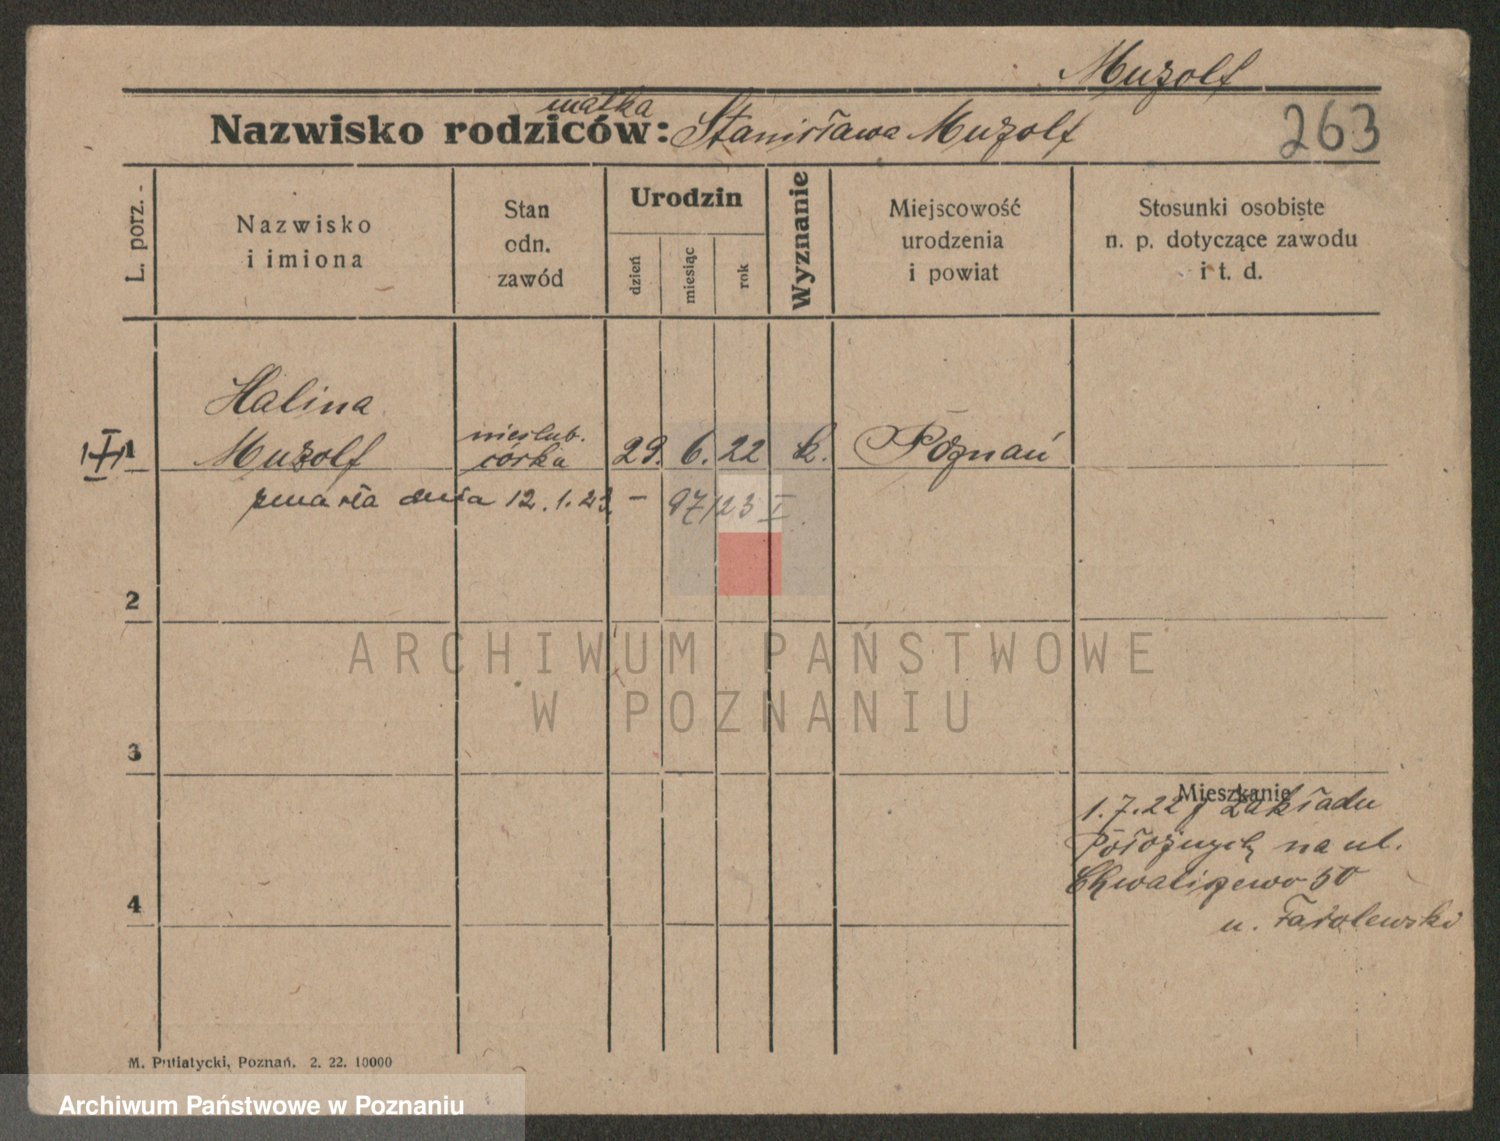 Muzolf
matka
Nazwisko rodziców: Stanisława Muzolf
263
L. porz.
Nazwisko
i imiona
Stan
odn.
zawód
Urodzin
dzień
miesiąc
rok
Wyznanie
Miejscowość
urodzenia
i powiat
Stosunki osobiste
n. p. dotyczące zawodu
i t. d.
1
Halina
Muzolf
nieślub.
córka
29. 6. 22 k. Poznań
zmarła dnia 12.1.23 - 97/23 I
2
ARCHIWUM PAŃSTWOWE
W POZNANIU
3
Mieszkanie
1.7.22 z Zakładu
Położnych na ul.
Chwaliszewo 50
4
u.
M. Putiatycki, Poznań. 2. 22. 10000
Archiwum Państwowe w Poznaniu